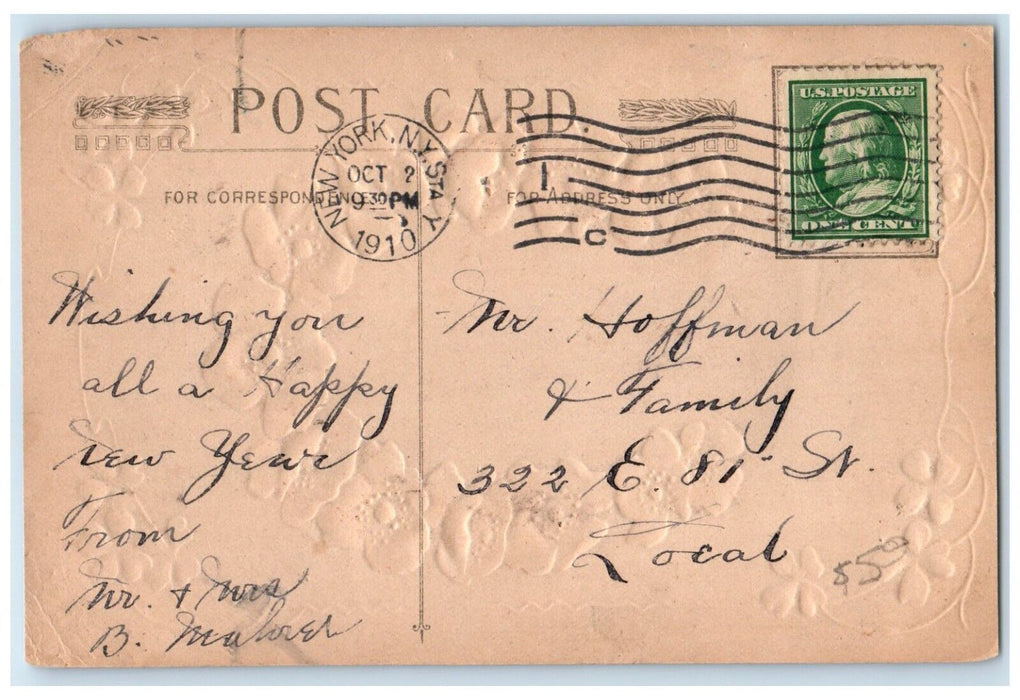 POST CARD.
U.S. POSTAGE
ONE CENT
NEW YORK, N.Y. STA Y
OCT 2
9 30 PM
1910
1
C
FOR CORRESPONDENCE
FOR ADDRESS ONLY.
Wishing you
all a Happy
New Year
From
Mr. & Mrs
B.
Mr. Hoffman
& Family
322 E. 81 St.
Local
$5.00